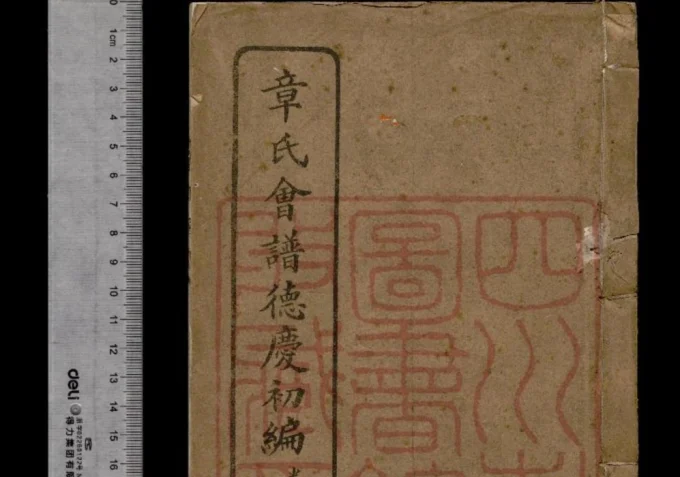 章氏會譜德慶初編
四川
圖書
藏
0 1cm 2 3 4 5 6 7 8 9 10 11 12 13 14 15 16
deli
得力集团有